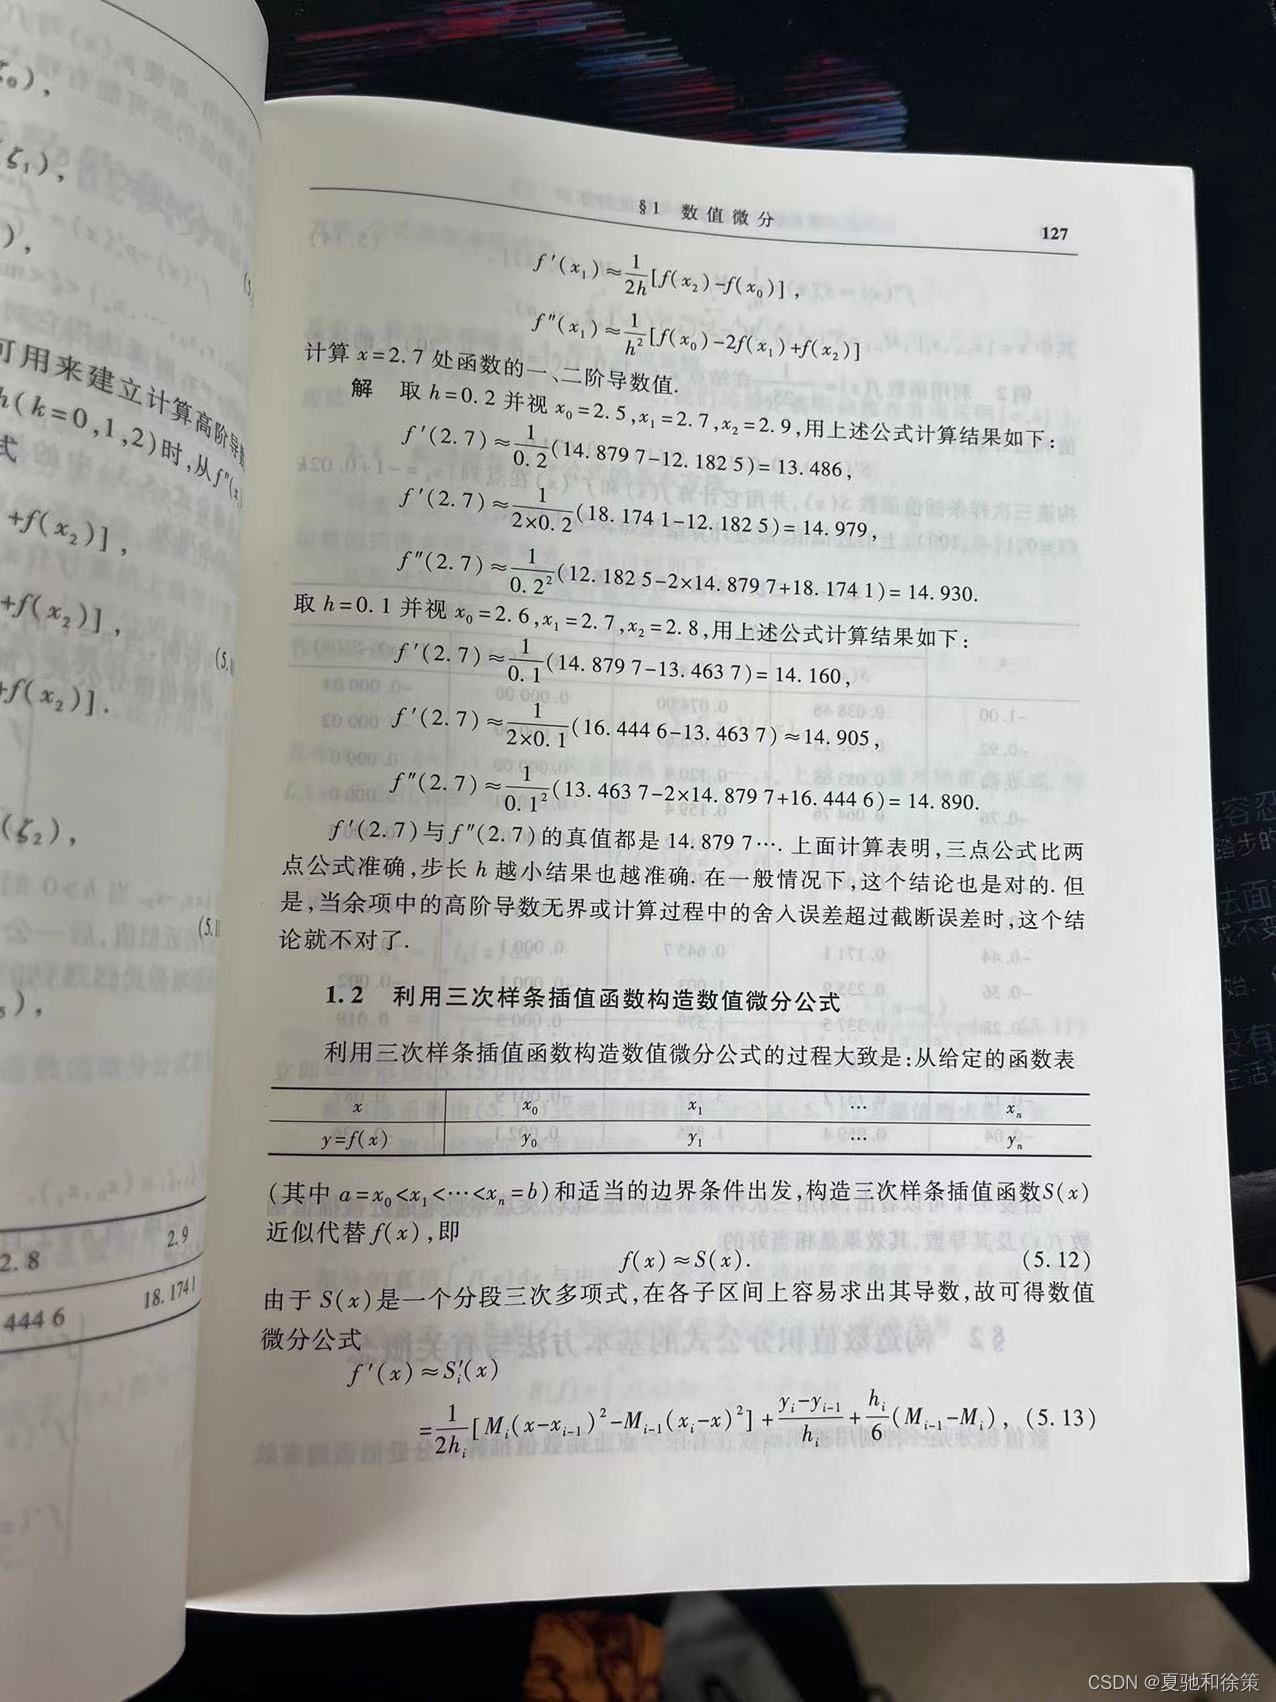 ζ₀),
(ζ₁),
),
(5.
可用来建立计算高阶导数
h(k=0,1,2)时,从f″(x
式
+f(x₂)],
+f(x₂)],
(5.1
+f(x₂)].
(ζ₂),
(5.1
),
2.8 2.9
444 6 18.174 1
§1 数值微分 127
f′(x₁)≈1/(2h)[f(x₂)-f(x₀)],
f″(x₁)≈1/h²[f(x₀)-2f(x₁)+f(x₂)]
计算 x=2.7 处函数的一、二阶导数值.
解 取 h=0.2 并视 x₀=2.5,x₁=2.7,x₂=2.9,用上述公式计算结果如下:
f′(2.7)≈1/0.2(14.879 7-12.182 5)=13.486,
f′(2.7)≈1/(2×0.2)(18.174 1-12.182 5)=14.979,
f″(2.7)≈1/0.2²(12.182 5-2×14.879 7+18.174 1)=14.930.
取 h=0.1 并视 x₀=2.6,x₁=2.7,x₂=2.8,用上述公式计算结果如下:
f′(2.7)≈1/0.1(14.879 7-13.463 7)=14.160,
f′(2.7)≈1/(2×0.1)(16.444 6-13.463 7)≈14.905,
f″(2.7)≈1/0.1²(13.463 7-2×14.879 7+16.444 6)=14.890.
f′(2.7)与f″(2.7)的真值都是 14.879 7…. 上面计算表明,三点公式比两
点公式准确,步长 h 越小结果也越准确. 在一般情况下,这个结论也是对的. 但
是,当余项中的高阶导数无界或计算过程中的舍入误差超过截断误差时,这个结
论就不对了.
1.2 利用三次样条插值函数构造数值微分公式
利用三次样条插值函数构造数值微分公式的过程大致是:从给定的函数表
x x₀ x₁ … xₙ
y=f(x) y₀ y₁ … yₙ
(其中 a=x₀<x₁<…<xₙ=b)和适当的边界条件出发,构造三次样条插值函数S(x)
近似代替 f(x),即
f(x)≈S(x). (5.12)
由于 S(x)是一个分段三次多项式,在各子区间上容易求出其导数,故可得数值
微分公式
f′(x)≈Sᵢ′(x)
=1/(2hᵢ)[Mᵢ(x-xᵢ₋₁)²-Mᵢ₋₁(xᵢ-x)²]+(yᵢ-yᵢ₋₁)/hᵢ+hᵢ/6(Mᵢ₋₁-Mᵢ), (5.13)
CSDN @夏驰和徐策